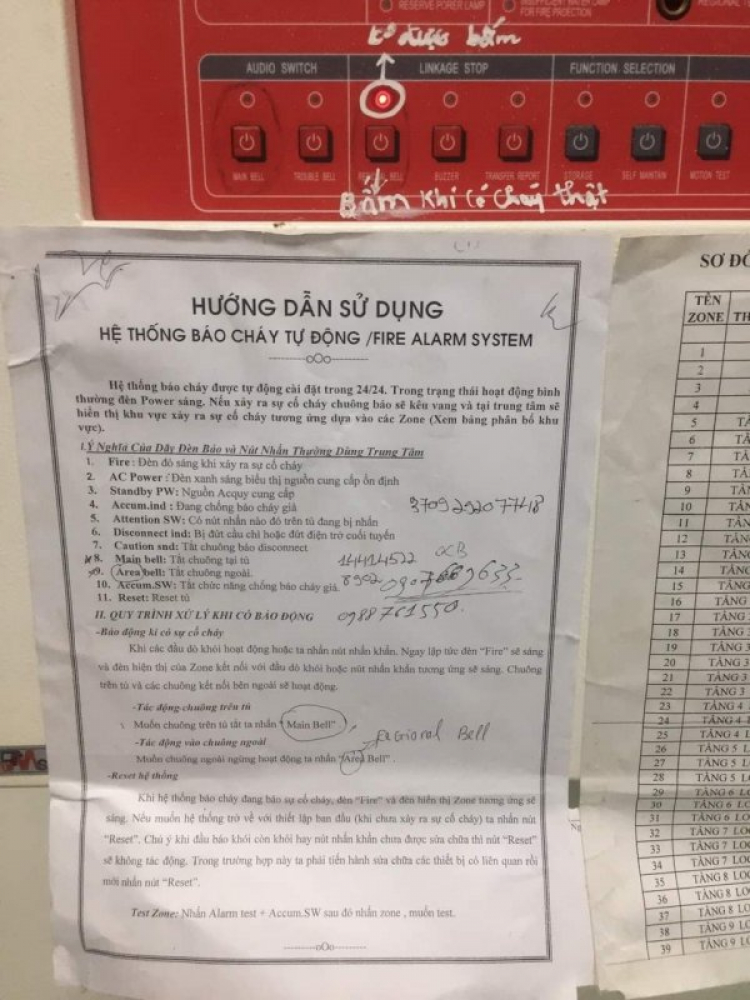 RESERVE POWER LAMP
INSUFFICIENT WATER LAMP
FOR FIRE PROJECTION
REGIONAL
được bấm
AUDIO SWITCH
LINKAGE STOP
FUNCTION SELECTION
MAIN BELL
TROUBLE BELL
BELL
BUZZER
TRANSFER REPORT
STORAGE
SELF MAINTAIN
MOTION TEST
Bấm khi có cháy thật
HƯỚNG DẪN SỬ DỤNG
HỆ THỐNG BÁO CHÁY TỰ ĐỘNG /FIRE ALARM SYSTEM
----------oOo----------
Hệ thống báo cháy được tự động cài đặt trong 24/24. Trong trạng thái hoạt động bình
thường đèn Power sáng. Nếu xảy ra sự cố cháy chuông báo sẽ kêu vang và tại trung tâm sẽ
hiển thị khu vực xảy ra sự cố cháy tương ứng dựa vào các Zone (Xem bảng phân bố khu
vực).
I.Ý Nghĩa Của Dãy Đèn Báo và Nút Nhấn Thường Dùng Trung Tâm
1. Fire : Đèn đỏ sáng khi xảy ra sự cố cháy
2. AC Power : Đèn xanh sáng biểu thị nguồn cung cấp ổn định
3. Standby PW: Nguồn Acquy cung cấp
4. Accum.ind : Đang chống báo cháy giả
5. Attention SW: Có nút nhấn nào đó trên tủ đang bị nhấn
6. Disconnect ind: Bị đứt cầu chì hoặc đứt điện trở cuối tuyến
7. Caution snd: Tắt chuông báo disconnect
8. Main bell: Tắt chuông tại tủ
9. Area bell: Tắt chuông ngoài.
10. Accum.SW: Tắt chức năng chống báo cháy giả.
11. Reset: Reset tủ
14414522 ACB
0988761550.
II. QUY TRÌNH XỬ LÝ KHI CÓ BÁO ĐỘNG
-Báo động ki có sự cố cháy
Khi các đầu dò khói hoạt động hoặc ta nhấn nút nhấn khẩn. Ngay lập tức đèn "Fire" sẽ sáng
và đèn hiện thị của Zone kết nối với đầu dò khói hoặc nút nhấn khẩn tương ứng sẽ sáng. Chuông
trên tủ và các chuông kết nối bên ngoài sẽ hoạt động.
-Tác động chuông trên tủ
Muốn chuông trên tủ tắt ta nhấn "Main Bell"
-Tác động vào chuông ngoài
Regional Bell
Muốn chuông ngoài ngừng hoạt động ta nhấn "Area Bell".
-Reset hệ thống
Khi hệ thống báo cháy đang báo sự cố cháy, đèn "Fire" và đèn hiển thị Zone tương ứng sẽ
sáng. Nếu muốn hệ thống trở về với thiết lập ban đầu (khi chưa xảy ra sự cố cháy) ta nhấn nút
"Reset". Chú ý khi đầu báo khói còn khói hay nút nhấn khẩn chưa được sửa chữa thì nút "Reset"
sẽ không tác động. Trong trường hợp này ta phải tiến hành sửa chữa các thiết bị có liên quan rồi
mới nhấn nút "Reset".
Test Zone: Nhấn Alarm test + Accum.SW sau đó nhấn zone , muốn test.
----------oOo----------
SƠ ĐỒ
TÊN
ZONE TH
1
2
3
4
5 TẦ
6 TẦ
7 TẦ
8 TẦ
9 TẦN
10 TẦN
11 TẦN
12 TẦN
13 TẦN
14 TẦNG
15 TẦNG
16 TẦNG
17 TẦNG
18 TẦNG
19 TẦNG 3
20 TẦNG 3
21 TẦNG 3
22 TẦNG 3
23 TẦNG 4 L
24 TẦNG 4 L
25 TẦNG 4 L
26 TẦNG 5 L
27 TẦNG 5 LO
28 TẦNG 5 LO
29 TẦNG 6 LO
30 TẦNG 6 LO
31 TẦNG 6 LO
32 TẦNG 7 LOG
33 TẦNG 7 LOG
34 TẦNG 7 LOG
35 TẦNG 8 LOG
36 TẦNG 8 LO
37 TẦNG 8 LO
38 TẦNG 9 LO
39 TẦNG 9 LO